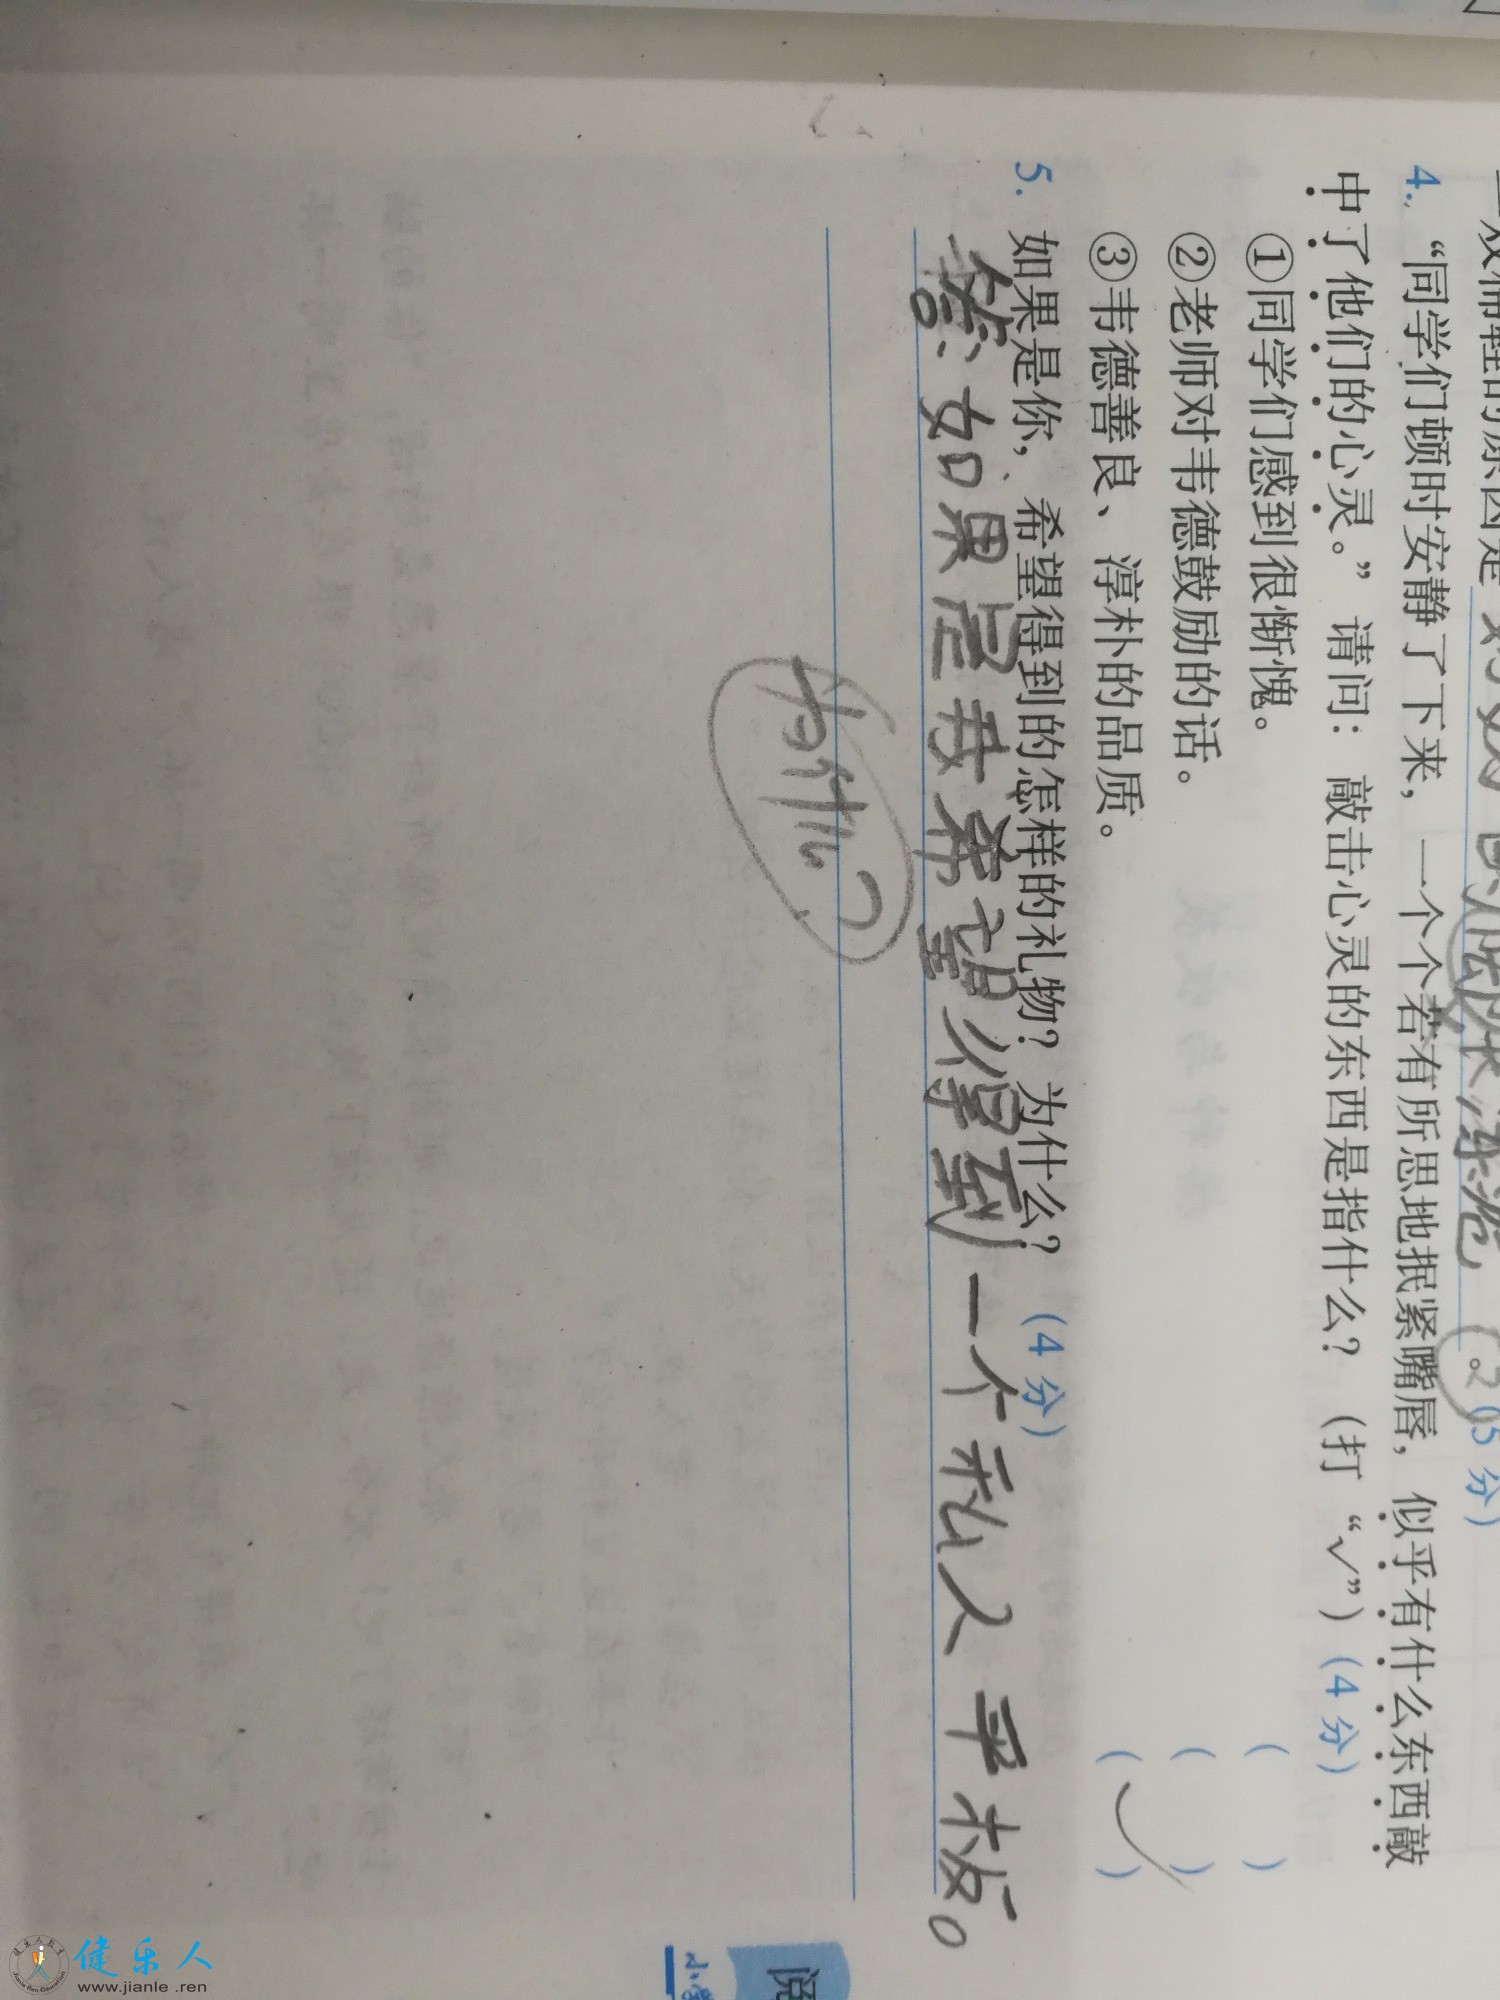 双棉鞋的原因是 对如 的
(2 (5分)
4. “同学们顿时安静了下来，一个个若有所思地抿紧嘴唇，似乎有什么东西敲
中了他们的心灵。”请问：敲击心灵的东西是指什么？（打“√”）(4分)
①同学们感到很惭愧。 ( )
②老师对韦德鼓励的话。 ( )
③韦德善良、淳朴的品质。 (√)
5. 如果是你，希望得到的怎样的礼物？为什么？(4分)
答：如果是我希望得到一个私人平板。
为什么？
阅
小学
健乐人
www.jianle.ren